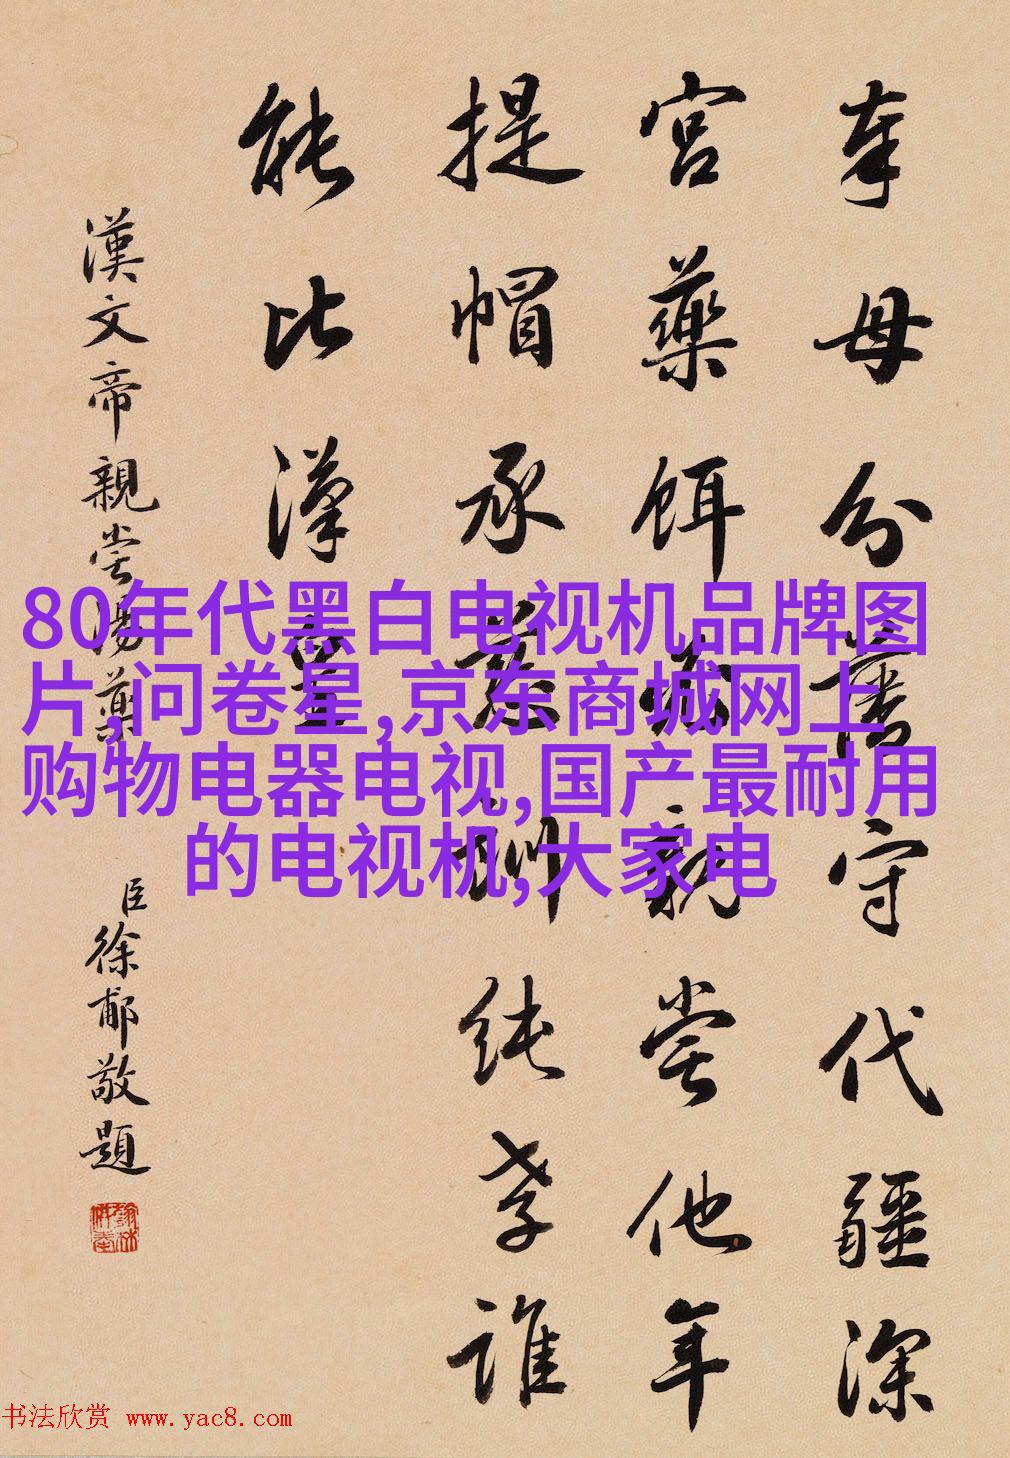 奉母分藩守代疆深
宮藥餌親嘗他年
提帽承慈訓純孝誰
能比漢皇
漢文帝親嘗湯藥
臣徐郙敬題
80年代黑白电视机品牌图
片,问卷星,京东商城网上
购物电器电视,国产最耐用
的电视机,大家电
书法欣赏 www.yac8.com